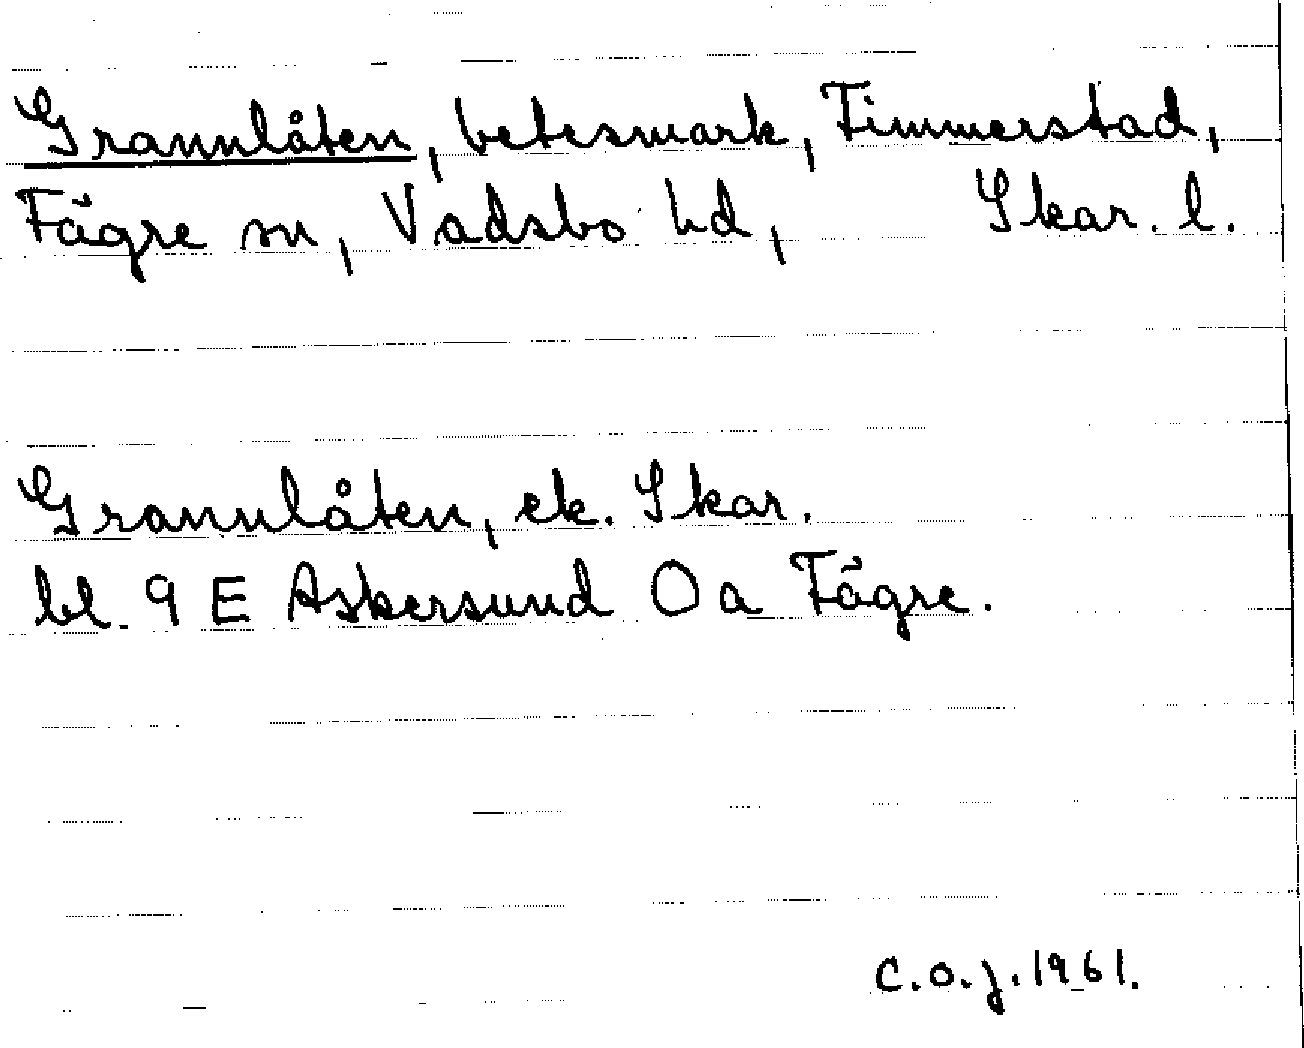 Grannlåten, betesmark, Timmerstad,
Fägre sn, Vadsbo hd, Skar. l.
Grannlåten, ek. Skar.
bl. 9 E Askersund 0 a Fägre.
C.O.J. 1961.